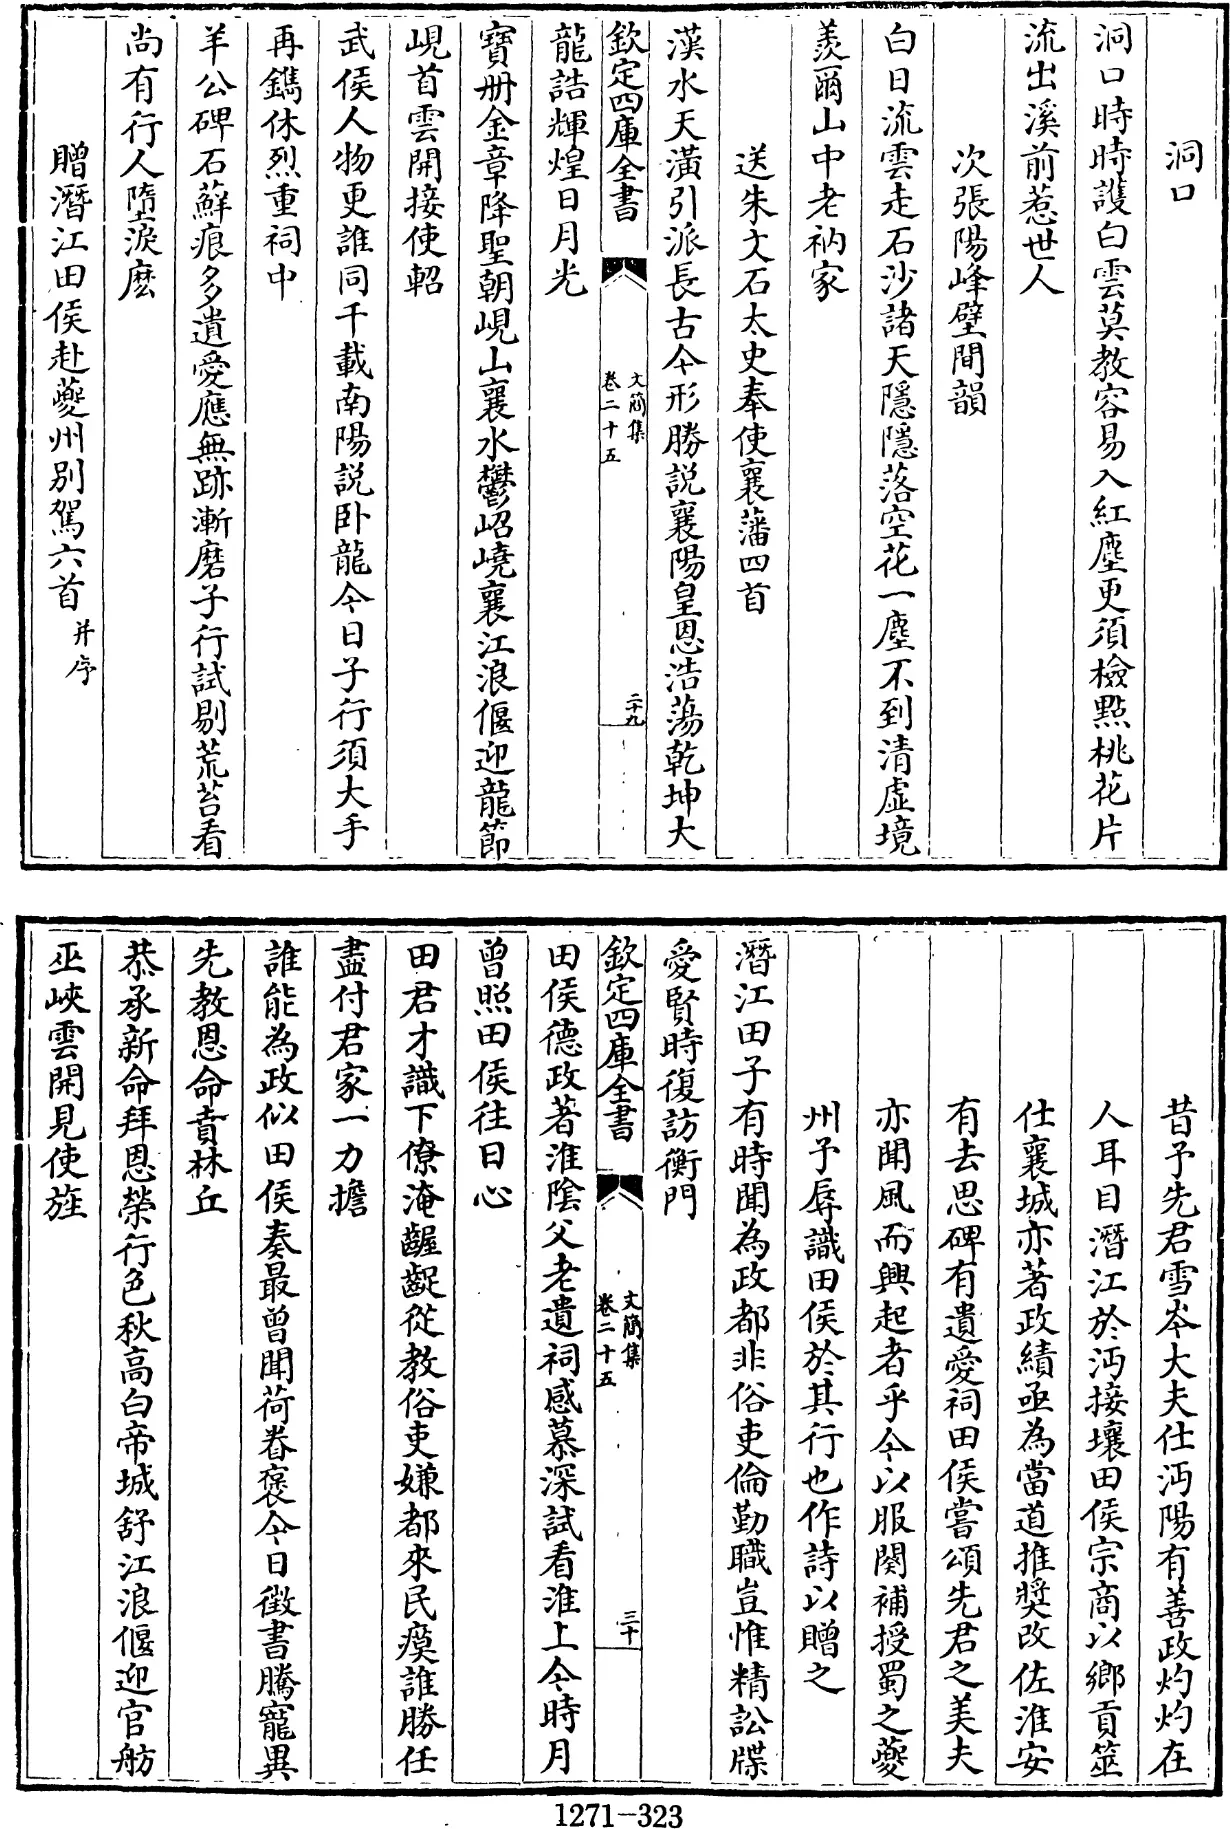 洞口
洞口時時護白雲莫教容易入紅塵更須檢點桃花片
流出溪前惹世人
次張陽峰壁間韻
白日流雲走石沙諸天隱隱落空花一塵不到清虛境
羨爾山中老衲家
送朱文石太史奉使襄藩四首
漢水天潢引派長古今形勝説襄陽皇恩浩蕩乾坤大
欽定四庫全書
文簡集
卷二十五
二十九
龍誥輝煌日月光
寶冊金章降聖朝峴山襄水鬱岧嶢襄江浪偃迎龍節
峴首雲開接使軺
武侯人物更誰同千載南陽説卧龍今日子行須大手
再鐫休烈重祠中
羊公碑石蘚痕多遺愛應無跡漸磨子行試剔荒苔看
尚有行人墮淚麽
贈潛江田侯赴夔州別駕六首并序
昔予先君雪岑大夫仕沔陽有善政灼灼在
人耳目潛江於沔接壤田侯宗商以鄉貢筮
仕襄城亦著政績亟為當道推奬改佐淮安
有去思碑有遺愛祠田侯嘗頌先君之美夫
亦聞風而興起者乎今以服闋補授蜀之夔
州予辱識田侯於其行也作詩以贈之
潛江田子有時聞為政都非俗吏倫勤職豈惟精訟牒
愛賢時復訪衡門
欽定四庫全書
文簡集
卷二十五
三十
田侯德政著淮陰父老遺祠感慕深試看淮上今時月
曾照田侯往日心
田君才識下僚淹齷齪從教俗吏嫌都來民瘼誰勝任
盡付君家一力擔
誰能為政似田侯奏最曾聞荷眷褒今日徵書騰寵異
先教恩命賁林丘
恭承新命拜恩榮行色秋高白帝城舒江浪偃迎官舫
巫峽雲開見使旌
1271-323